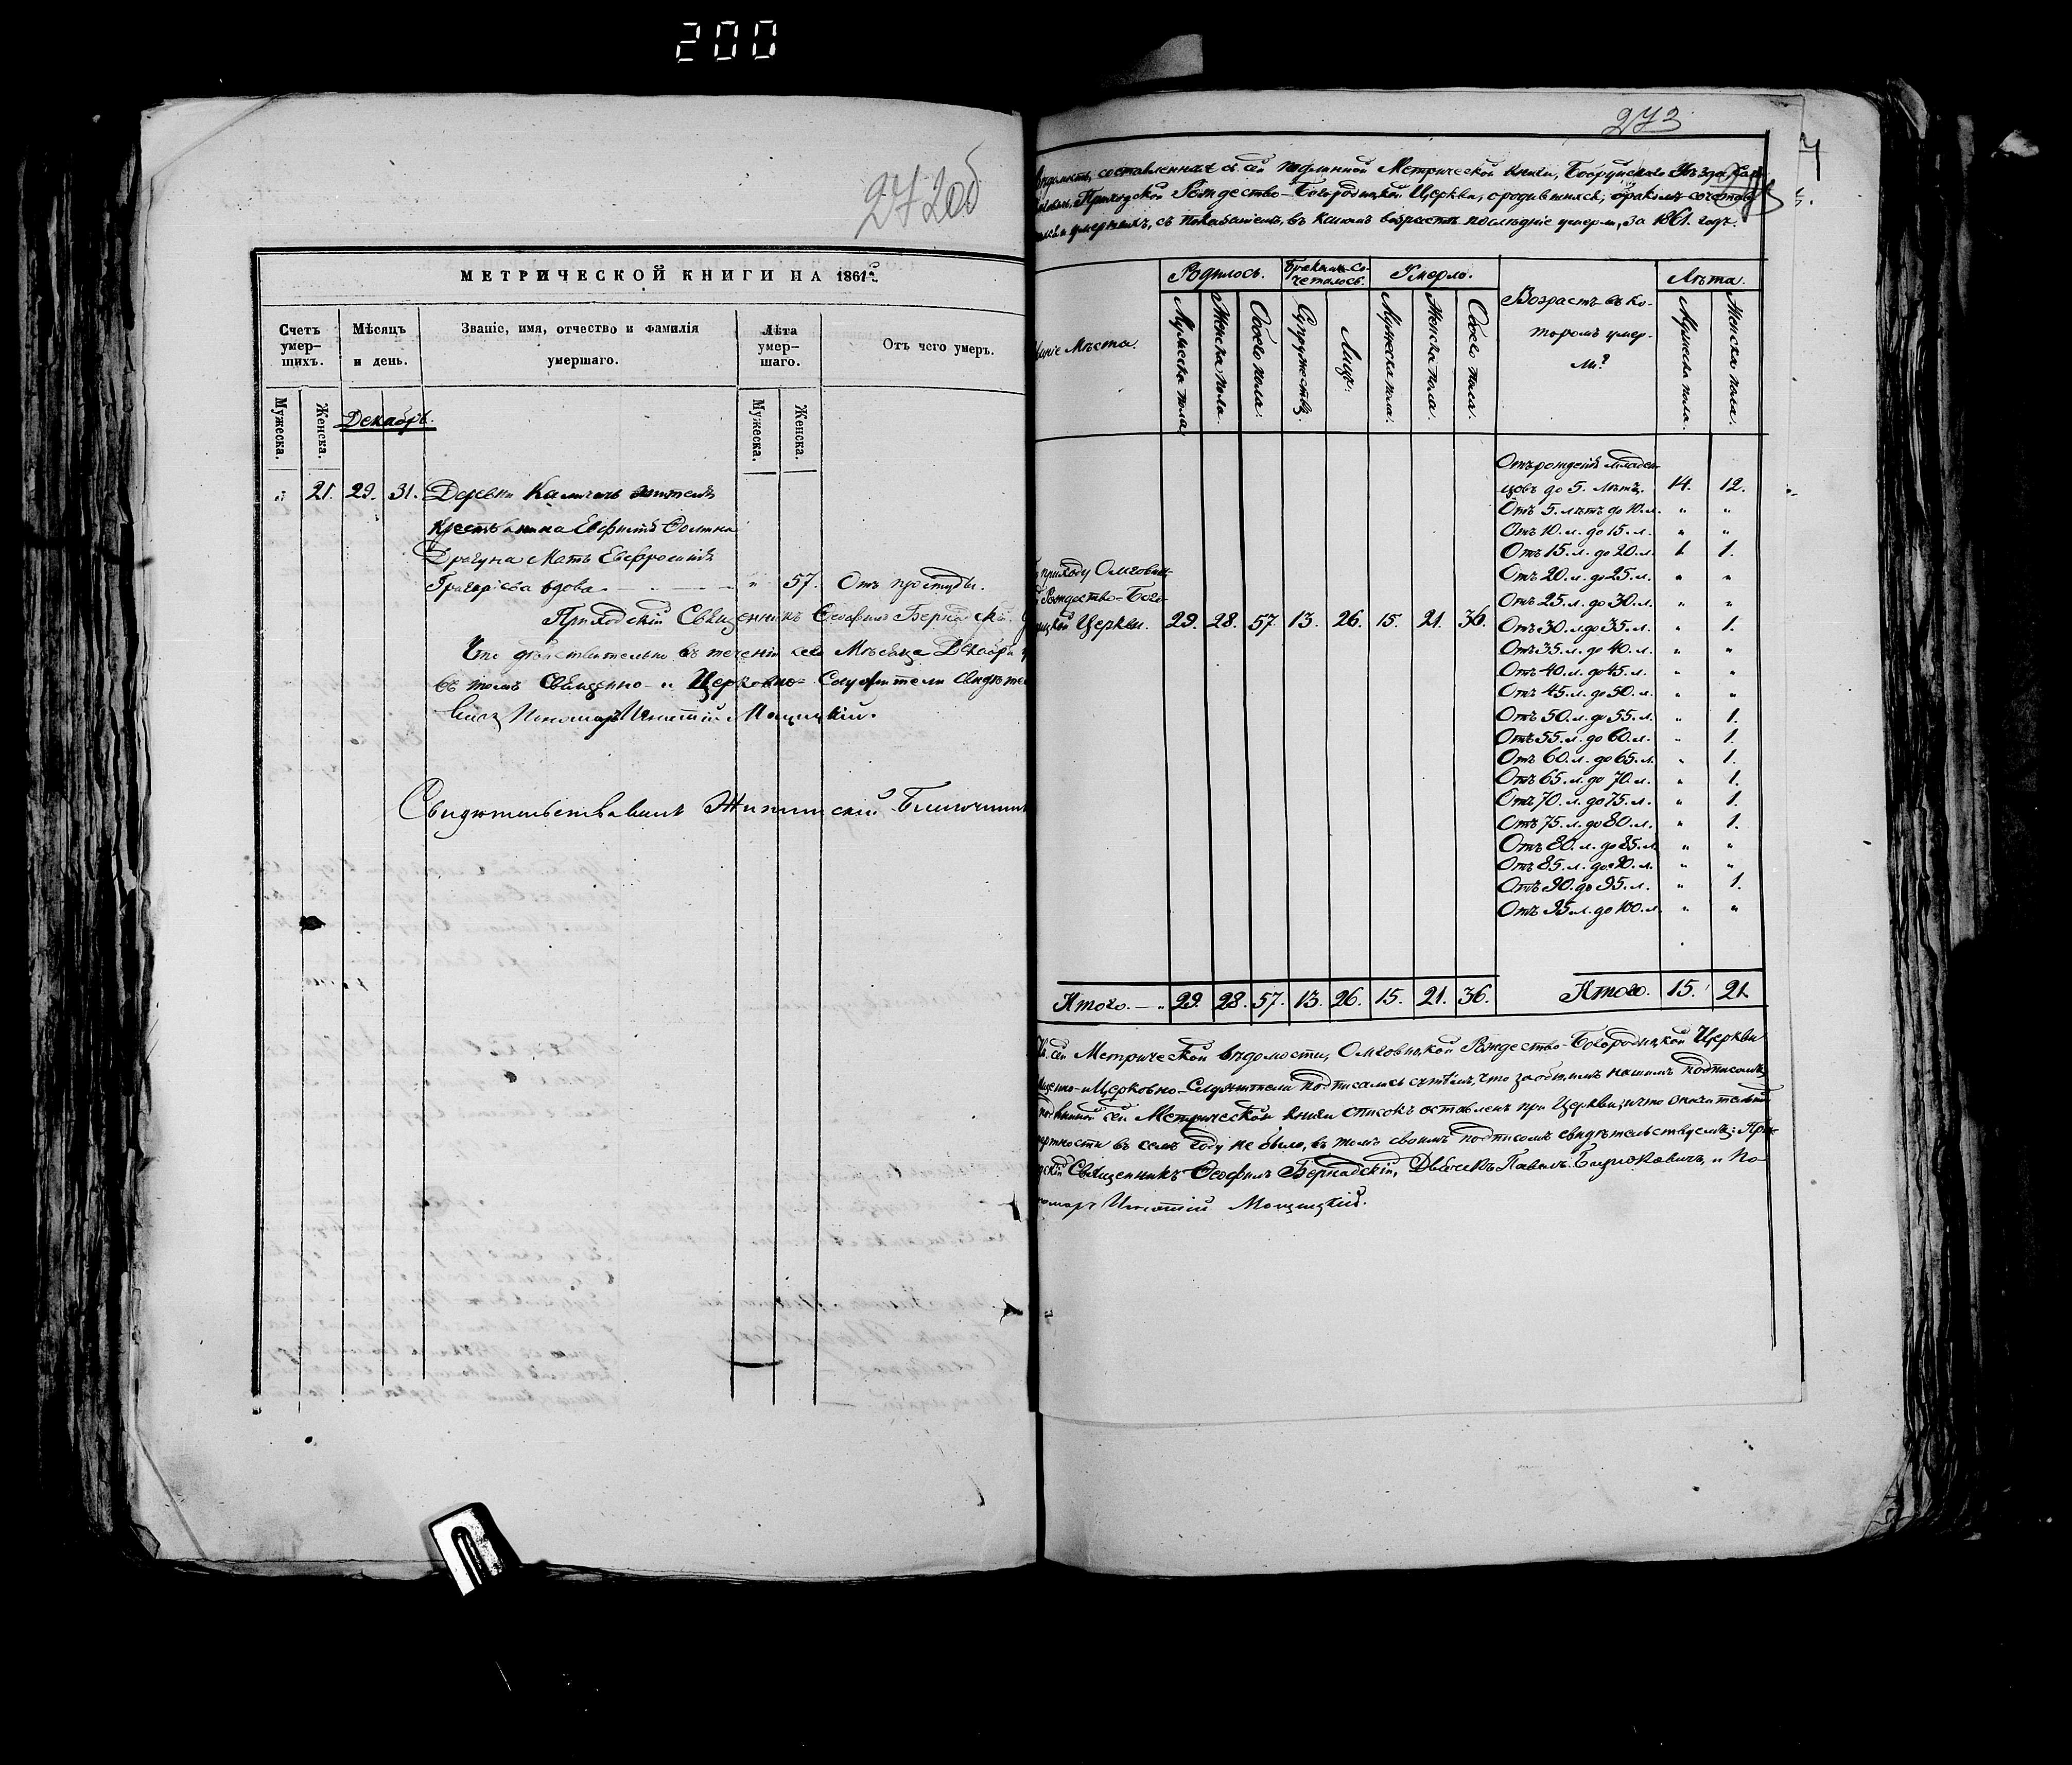 200
272об
МЕТРИЧЕСКОЙ КНИГИ НА 1861й
Счетъ умер-шихъ.
Мѣсяцъ и день.
Званіе, имя, отчество и фамилія умершаго.
Лѣта умер-шаго.
Отъ чего умеръ.
Мужеска.
Женска.
Декабрь.
Мужеска.
Женска.
" 21. 29. 31. Деревни жителя
крестьянина
Драгуна Мать Евфросинія
вдова " 57. Отъ простуды.
Приходскій Священникъ Ѳеофилъ Бернадскій.
Что дѣйствительно въ теченіи сего Мѣсяца Декабря
въ томъ Священно- и Церковно-Служители
Пономарь Игнатій Мощицкій.
273
составленная съ сей подлинной Метрической книги, Бобруйскаго Уѣзда
Приходской Рождество-Богородицкой Церкви, о родившихся, бракомъ
умершихъ, съ показаніемъ, въ какомъ возрастѣ послѣдніе умерли, за 1861. годъ.
Мѣста.
Родилось.
Мужеска пола.
Женска пола.
Обоего пола.
Бракомъ Со-четалось.
Супружествъ.
Лицъ.
Умерло.
Мужеска пола.
Женска пола.
Обоего пола.
Возрастъ въ ко-
торомъ умер-
ли?
Лѣта.
Мужеска пола.
Женска пола.
приходу
Рождество-Бого-
Церкви. 29. 28. 57. 13. 26. 15. 21. 36.
Отъ рожденія младен-
цовъ до 5. лѣтъ. 14. 12.
Отъ 5. лѣтъ до 10. л. " "
Отъ 10. л. до 15. л. " "
Отъ 15. л. до 20. л. 1. 1.
Отъ 20. л. до 25. л. " "
Отъ 25. л. до 30. л. " "
Отъ 30. л. до 35. л. " 1.
Отъ 35. л. до 40. л. " "
Отъ 40. л. до 45. л. " "
Отъ 45. л. до 50. л. " "
Отъ 50. л. до 55. л. " 1.
Отъ 55. л. до 60. л. " 1.
Отъ 60. л. до 65. л. " 1.
Отъ 65. л. до 70. л. " 1.
Отъ 70. л. до 75. л. " 1.
Отъ 75. л. до 80. л. " 1.
Отъ 80. л. до 85. л. " "
Отъ 85. л. до 90. л. " "
Отъ 90. до 95. л. " 1.
Отъ 95. л. до 100. л. " "
Итого. — " 29. 28. 57. 13. 26. 15. 21. 36. Итого. 15. 21.
сей Метрической вѣдомости, Рождество-Богородицкой Церкви
Церковно-Служители подписались съ тѣмъ, что за общимъ нашимъ подписомъ
сей Метрической книги списокъ оставленъ при Церкви, и что
въ семъ году не было, въ томъ своимъ подписомъ свидѣтельствуемъ: При-
Священникъ Ѳеофилъ Бернадскій, Дьячекъ Павелъ и По-
номарь Игнатій Мощицкій.